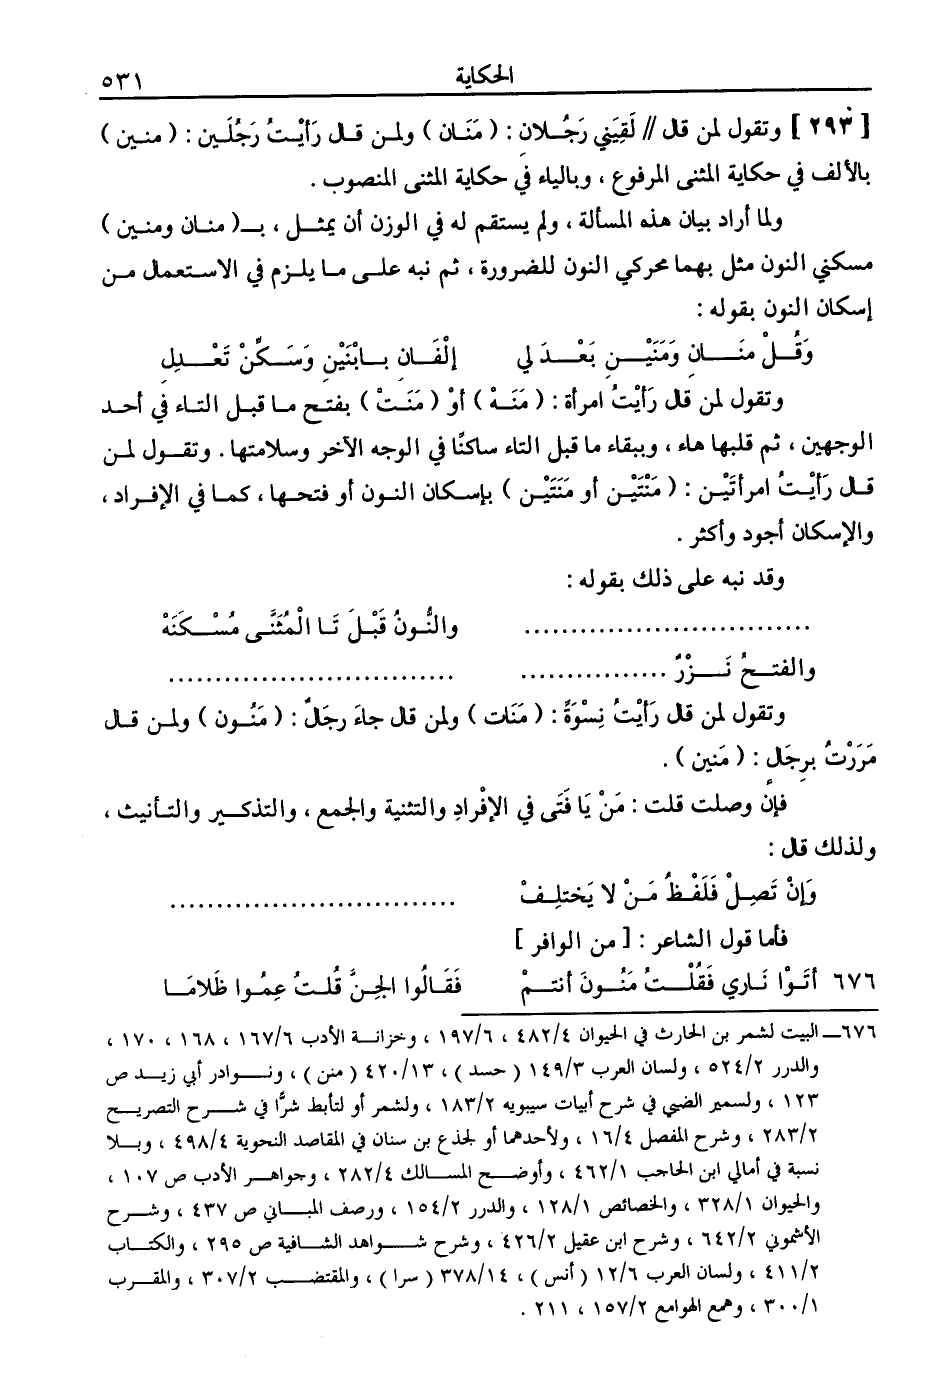 الحكاية ٥٣١
[ ٢٩٣ ] وتقول لمن قال // لَقِيَنِي رَجُـلان : ( مَنَان ) ولمن قـال رَأَيْتُ رَجُلَـين : ( منـين )
بالألف في حكاية المثنى المرفوع ، وبالياء في حكاية المثنى المنصوب .
ولما أراد بيان هذه المسألة ، ولم يستقم له في الوزن أن يمثـل ، بـ( منـان ومنـين )
مسكني النون مثل بهما محركي النون للضرورة ، ثم نبه علـى مـا يلـزم في الاستعمال مـن
إسكان النون بقوله :
وَقُـلْ مَنَـــانِ وَمَنَيْـــنِ بَعْــدَ لي إلْفَــانِ بــابْنَيْنِ وَسَــكِّنْ تَعْــدِلِ
وتقول لمن قال رَأَيْتُ امرأة : ( مَنَـهْ ) أوْ ( مَنَـتْ ) بفتـح مـا قبـل التـاء في أحـد
الوجهين ، ثم قلبها هاء ، وببقاء ما قبل التاء ساكنًا في الوجه الآخر وسلامتها . وتقــول لمـن
قـال رَأَيْـتُ امرأتَيْـن : ( مَنْتَيْـن أو مَنَتَيْـن ) بإسكان النـون أو فتحهـا ، كمـا في الإفـراد ،
والإسكان أجود وأكثر .
وقد نبه على ذلك بقوله :
.............................. والنُّـونُ قَبْـلَ تَـا الْمُثَنَّـى مُسْـكَنَهْ
والفتـحُ نَــزْرٌ ................ ..............................
وتقول لمن قال رَأَيْتُ نِسْوَةً : ( مَنَات ) ولمن قال جاءَ رجَالٌ : ( مَنُـون ) ولمـن قـال
مَرَرْتُ برجَالٍ : ( مَنين ) .
فإن وصلت قلت : مَنْ يَا فَتَى في الإفْرادِ والتثنية والجمع ، والتذكـير والتـأنيث ،
ولذلك قال :
وَإنْ تَصِـلْ فَلَفْـظُ مَـنْ لا يَختلِـفْ ..............................
فأما قول الشاعر : [ من الوافر ]
٦٧٦ أتَـوْا نـاري فَقُلْـــتُ مَنُـونَ أنتـمْ فَقَـالُوا الجِـنَّ قُلـتُ عِمُـوا ظَلامَـا
٦٧٦ــ البيت لشمر بن الحارث في الحيوان ٤٨٢/٤ ، ١٩٧/٦ ، وخزانــة الأدب ١٦٧/٦ ، ١٦٨ ، ١٧٠ ،
والدرر ٥٢٤/٢ ، ولسان العرب ١٤٩/٣ ( حسد ) ، ٤٢٠/١٣ ( منن ) ، ونــوادر أبي زيـد ص
١٢٣ ، ولسمير الضبي في شرح أبيات سيبويه ١٨٣/٢ ، ولشمر أو لتأبط شرًّا في شــرح التصريـح
٢٨٣/٢ ، وشرح المفصل ١٦/٤ ، ولأحدهما أو لجذع بن سنان في المقاصد النحوية ٤٩٨/٤ ، وبــلا
نسبة في أمالي ابن الحاجب ٤٦٢/١ ، وأوضــح المسـالك ٢٨٢/٤ ، وجواهــر الأدب ص ١٠٧ ،
والحيوان ٣٢٨/١ ، والخصائص ١٢٨/١ ، والدرر ١٥٤/٢ ، ورصف المبــاني ص ٤٣٧ ، وشــرح
الأشموني ٦٤٢/٢ ، وشرح ابن عقيل ٤٢٦/٢ ، وشرح شــواهد الشـافية ص ٢٩٥ ، والكتـاب
٤١١/٢ ، ولسان العرب ١٢/٦ ( أنس ) ، ٣٧٨/١٤ ( سرا ) ، والمقتضــب ٣٠٧/٢ ، والمقــرب
٣٠٠/١ ، وهمع الهوامع ١٥٧/٢ ، ٢١١ .